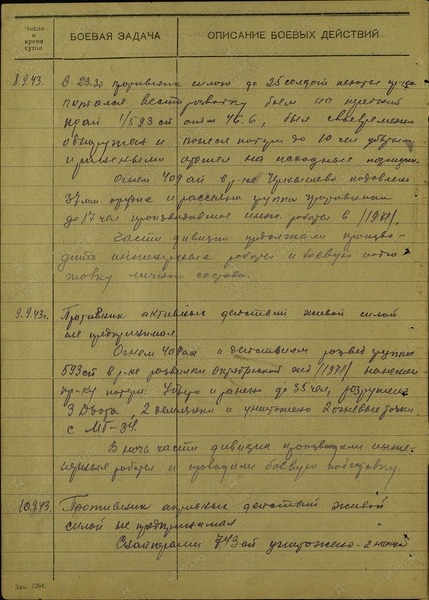 Число
и
время
суток
БОЕВАЯ ЗАДАЧА
ОПИСАНИЕ БОЕВЫХ ДЕЙСТВИЙ
8.9.43. В 23.30 противник силою до 25 солдат
пытался вести разведку боем на
1/593 сп 46.6, был своевременно
обнаружен и понеся потери до 10 чел убитыми
и ранеными отошел на исходные позиции
Огнем 409 ап в р-не подавлено
37 мм орудие и рассеяна группа противника
до 17 чел производившие инж. работы в /1971/
Части дивизии продолжали произво-
дить инженерные работы и боевую подго-
товку личного состава.
9.9.43г. Противник активных действий живой силой
не предпринимал.
Огнем 409 ап и действием развед группы
593 сп в р-не /1971/ нанесены
пр-ку потери: Убито и ранено до 35 чел, разрушено
3 Дзота, 2 землянки и уничтожено 2 огневые точки
с МГ-34.
В ночь части дивизии производили инже-
нерные работы и проводили боевую подготовку.
10.9.43. Противник активных действий живой
силой не предпринимал
Снайперами 743 сп уничтожено - 2 немца
Зак. 1264